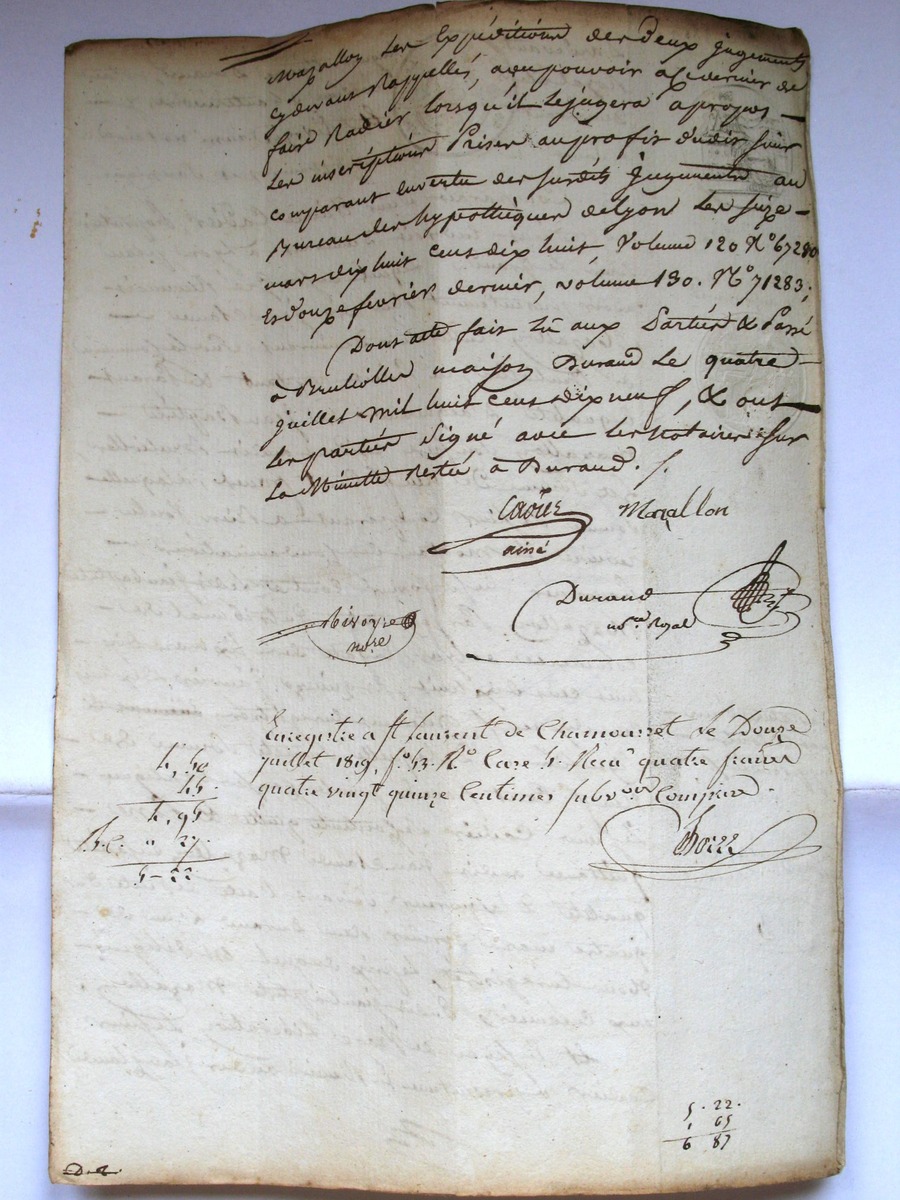 Mazallon les Expéditions des deux jugements
cydevant Rappellés, avec pouvoir a ce dernier de
faire Radier lorsqu'il le jugera a propos —
les inscriptions Prises au profit dudit sieur
comparant en vertu des susdits jugements au
Bureau des hypothèques de Lyon les seize —
mars dix huit cent dix huit, Volume 120 N° 67280
Et douze fevrier dernier, volume 130. N° 71283;
Dont acte fait lû aux Parties & Passé
à maison Durand le quatre —
juillet mil huit cent dix neuf, & ont —
les parties signé avec les notaires sur
la Minutte restée à Durand. /.
Mazallon
ainé
Durand
not.re Royal
Rivoyre
no.re
Enregistré a St Laurent de Chamousset le Douze
juillet 1819, f° 53. R° Case 5. Recu quatre francs
quatre vingt quinze Centimes subv.on Comprise.
4,50
45.
4,95
" 27.
5-22
5.22.
1 65
6 87